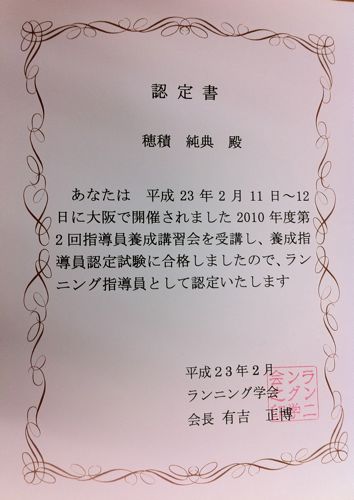 認定書
穂積 純典 殿
あなたは 平成23年2月11日～12
日に大阪で開催されました2010年度第
2回指導員養成講習会を受講し、養成指
導員認定試験に合格しましたので、ラン
ニング指導員として認定いたします
平成23年2月
ランニング学会
会長 有吉 正博